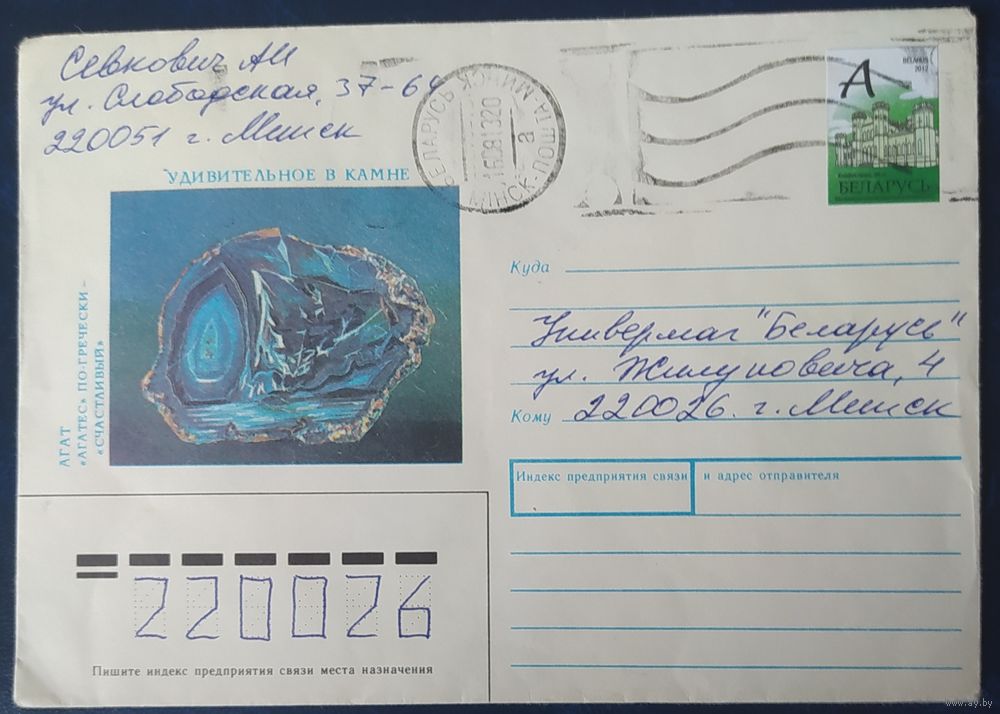 Севкович АИ
ул. Слободская, 37-64
220051 г. Минск
УДИВИТЕЛЬНОЕ В КАМНЕ
АГАТ
«АГАТЕС» ПО-ГРЕЧЕСКИ –
«СЧАСТЛИВЫЙ»
БЕЛАРУСЬ
МІНСК ПОШТА
а
A
BELARUS
2012
БЕЛАРУСЬ
Куда
Универмаг "Беларусь"
ул. Жилуновича, 4
Кому 220026 г. Минск
Индекс предприятия связи и адрес отправителя
220026
Пишите индекс предприятия связи места назначения
www.ay.by